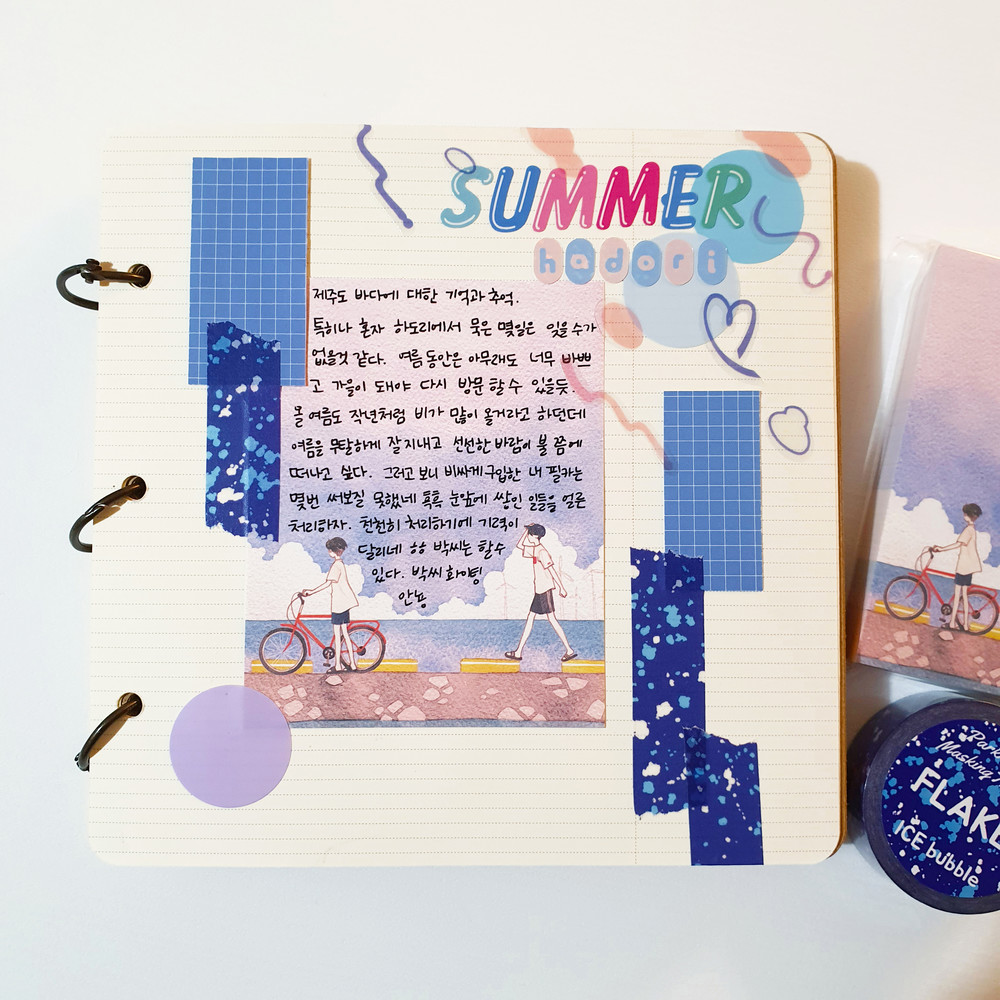 SUMMER
hadori
제주도 바다에 대한 기억과 추억.
특히나 혼자 하도리에서 묵은 몇일은 잊을수가
없을것 같다. 여름동안은 아무래도 너무 바쁘
고 가을이 돼야 다시 방문할수 있을듯.
올여름도 작년처럼 비가 많이 올거라고 하던데
여름을 무탈하게 잘지내고 선선한 바람이 불 쯤에
떠나고 싶다. 그러고 보니 비싸게구입한 내 필카는
몇번 써보질 못했네 흑흑 눈앞에 쌓인 일들을 얼른
처리하자. 천천히 처리하기에 기력이
달리네 ㅎㅎ 박씨는 할수
있다. 박씨 화이팅
안뇽
Masking
FLAKE
ICE bubble